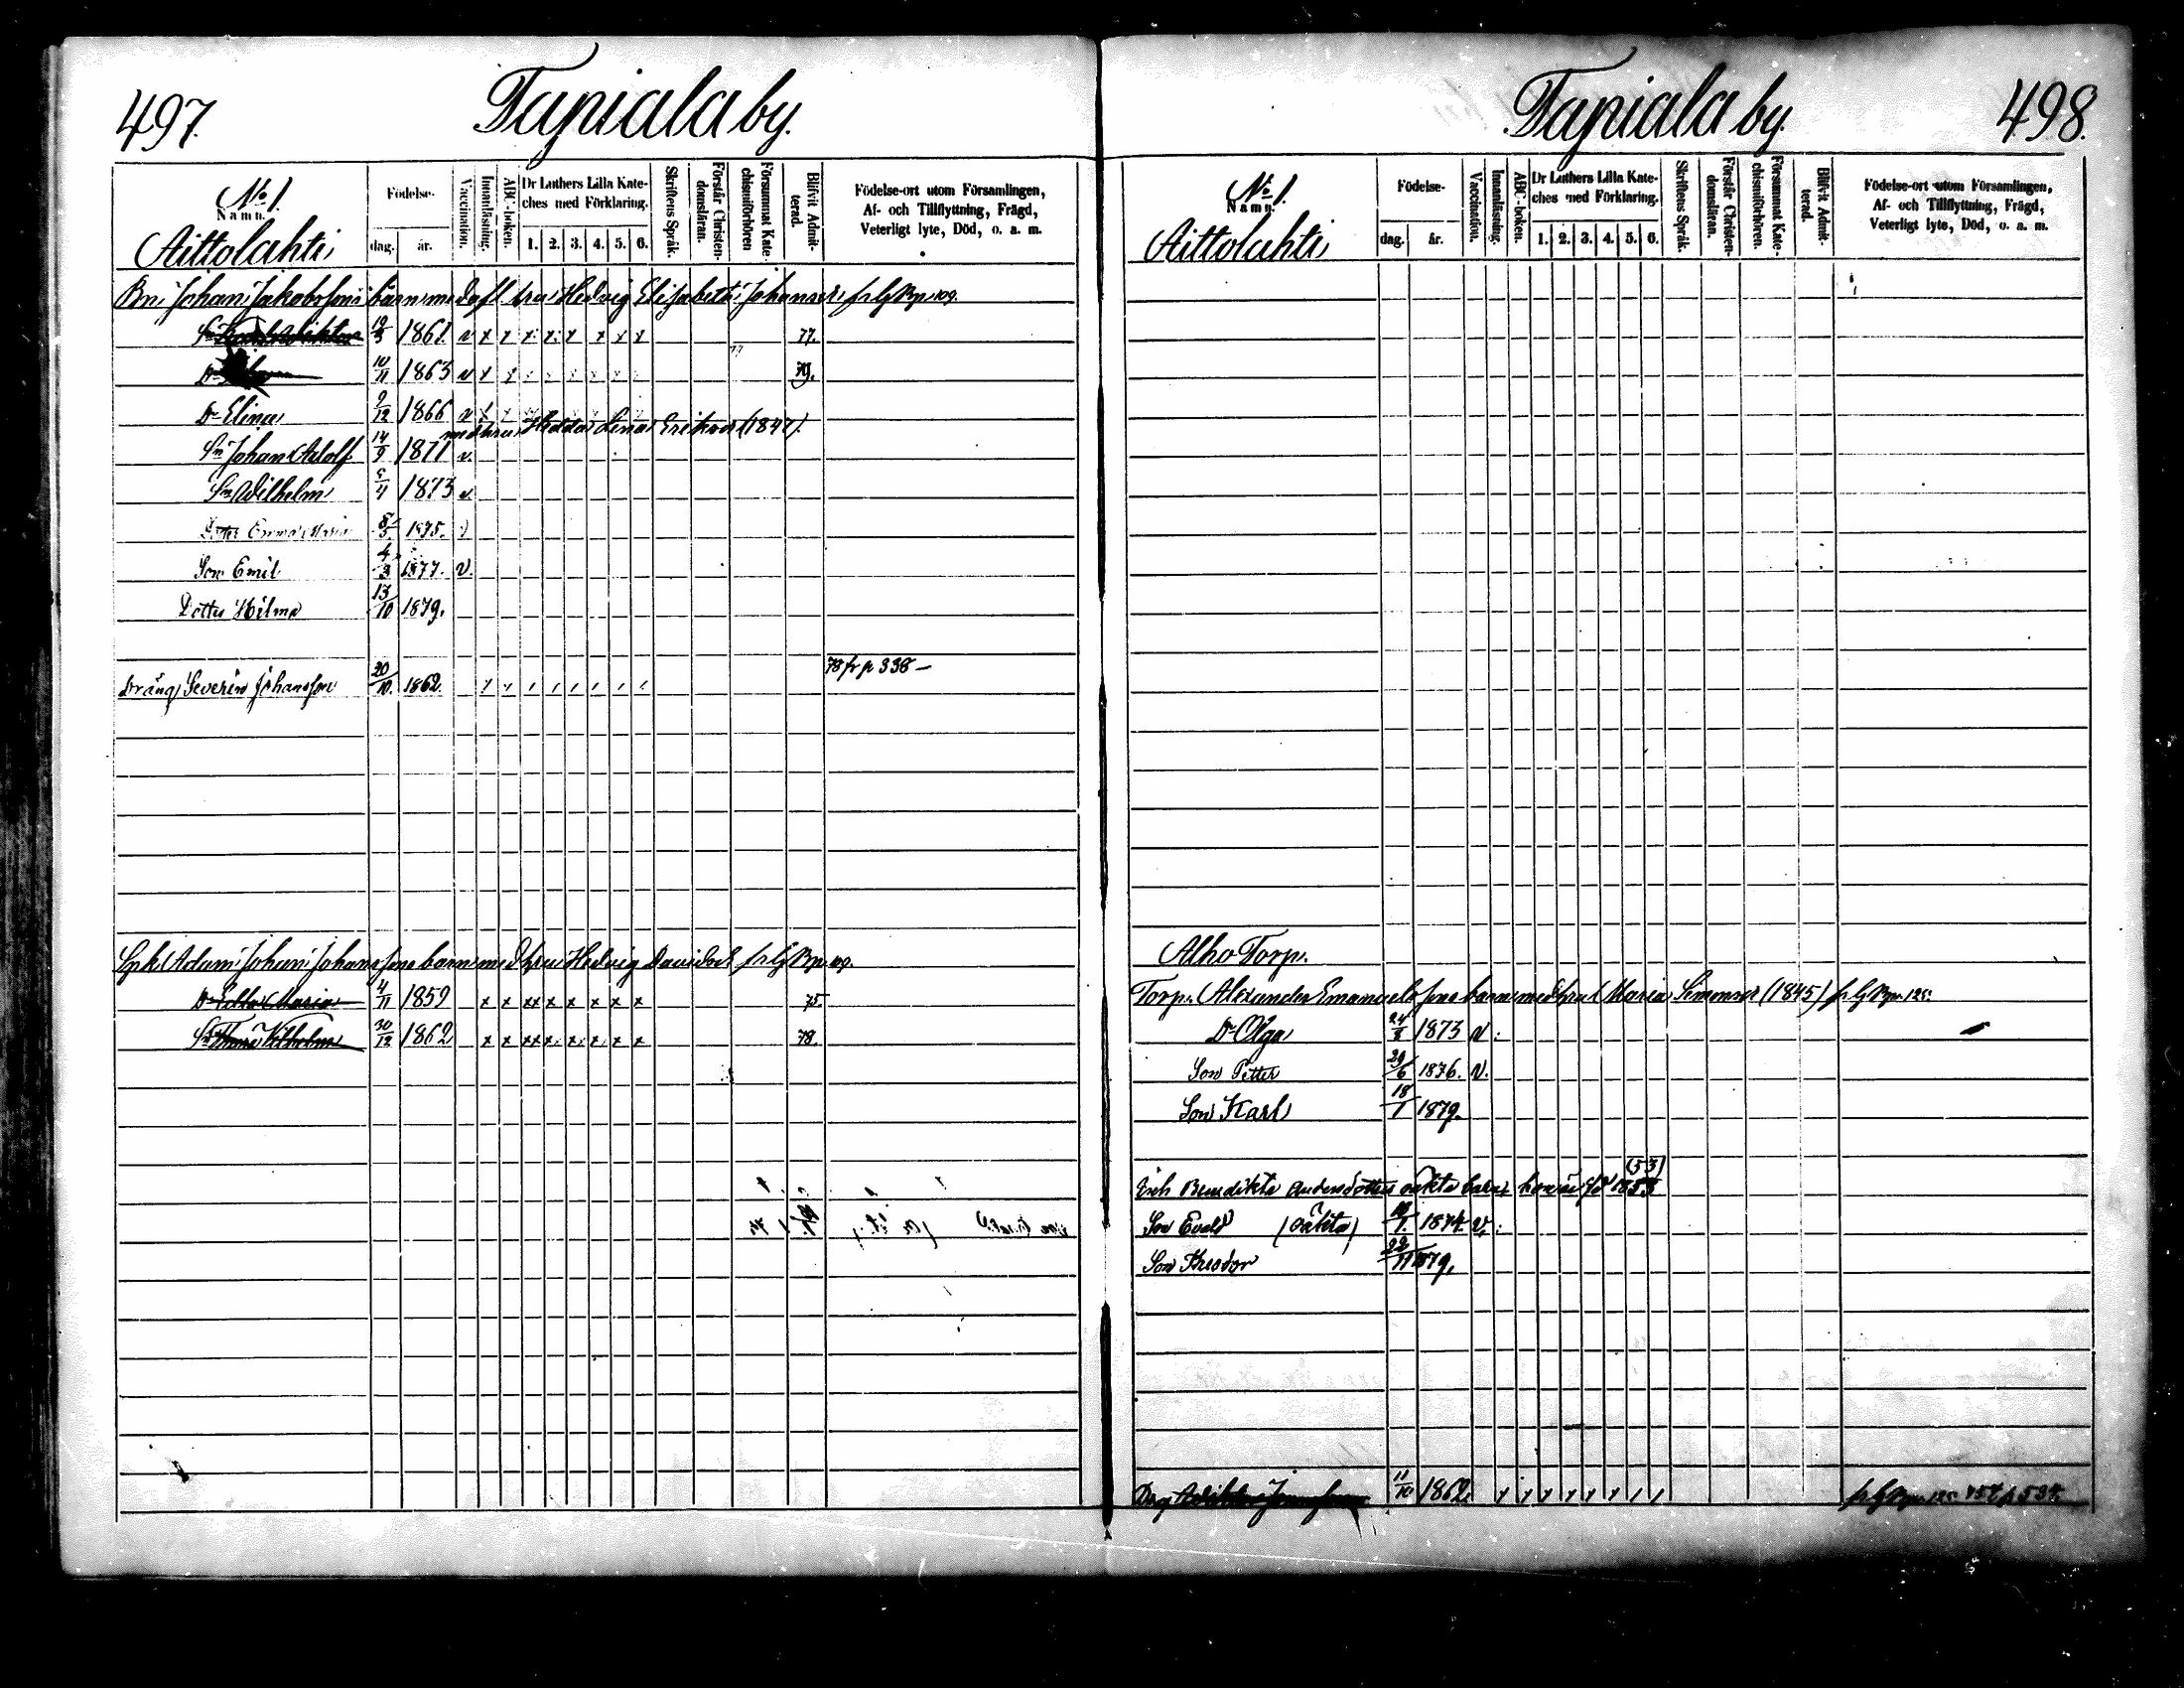 497.
Tapiala by.
No 1.
Namn.
Aittolahti
Födelse-
dag. år.
Vaccination.
Innanläsning.
ABC-boken.
Dr Luthers Lilla Kate-
ches med Förklaring.
1. 2. 3. 4. 5. 6.
Skriftens Språk.
Förstår Christen-
domsläran.
Försummat Kate-
chismiförhören
Blifvit Admit-
terad.
Födelse-ort utom Församlingen,
Af- och Tillflyttning, Frägd,
Veterligt lyte, Död, o. a. m.
Bn Johan Jakobssons barn med afl. hru Hedvig Elisabeth Johansdr fr LgBp. 109.
Sn 1861 v x x x x x x x x 77.
Dr 10/11 1863 v x x 79.
Dr Elina 9/12 1866 v x x
med hru Hedda Lena Eriksdr (1847)
Sn Johan Adolf 14/9 1871 v.
Sn Wilhelm 1873 v.
Dotter Emma Maria 1875. v
Son Emil 4/3 1877. v.
Dotter Hilma 13/10 1879.
78 fr p 338 –
Dräng Severin Johansson 20/10. 1862.
Adam Johan Johanssons barn med hru Hedvig Davidsdr fr LgBp. 109.
Dr Maria 4/11 1859 x x xx x x x x x 75.
Sn Wilhelm 30/12 1862 x x xx x x x x x 78.
Tapiala by.
498.
No 1.
Namn.
Aittolahti
Födelse-
dag. år.
Vaccination.
Innanläsning.
ABC-boken.
Dr Luthers Lilla Kate-
ches med Förklaring.
1. 2. 3. 4. 5. 6.
Skriftens Språk.
Förstår Christen-
domsläran.
Försummat Kate-
chismiförhören.
Blifvit Admit-
terad.
Födelse-ort utom Församlingen,
Af- och Tillflyttning, Frägd,
Veterligt lyte, Död, o. a. m.
Alho Torp.
Torp. Alexander Emanuelssons barn med hru Maria Simonsdr (1845) fr LgBp. 125.
Dr Olga 24/8 1873 v.
Son Petter 29/6 1876. v.
Son Karl 18/1 1879.
(53)
Benedikta Andersdotters oäkta barn
Son Evald (oäkta) 1874. v.
Son Theodor 22/11 1879.
Drg 11/10 1862.